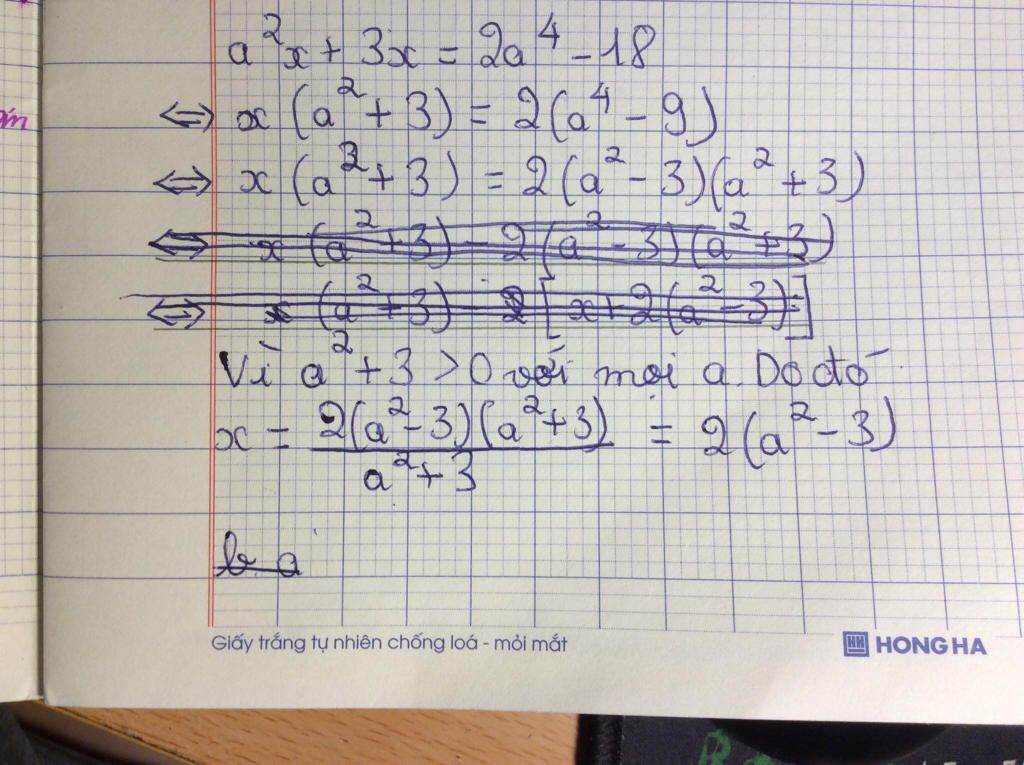 a²x + 3x = 2a⁴ - 18
⇔ x (a² + 3) = 2(a⁴ - 9)
⇔ x (a² + 3) = 2(a² - 3)(a² + 3)
⇔ x (a² + 3) - 2(a² - 3)(a² + 3)
⇔ x (a² + 3) - 2 [x + 2(a² - 3) =]
Vì a² + 3 > 0 với mọi a. Do đó
x = 2(a² - 3)(a² + 3) / a² + 3 = 2(a² - 3)
b. a
Giấy trắng tự nhiên chống loá - mỏi mắt
HH HONG HA